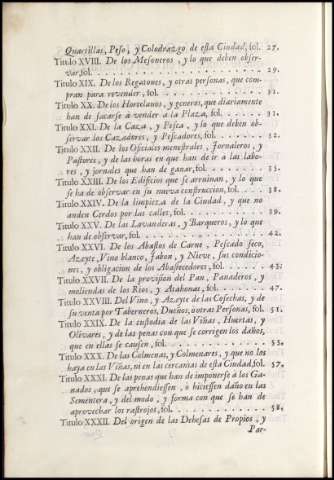 Quartillas, Peso, y Colodrazgo de esta Ciudad, fol. 27.
Titulo XVIII. De los Mesoneros, y lo que deben obser-
var, fol. . . . . . . . . . . . . . 29.
Titulo XIX. De los Regatones, y otras personas, que com-
pran para revender, fol. . . . . . . . . 31.
Titulo XX. De los Hortelanos, y generos, que diariamente
han de sacarse à vender à la Plaza, fol. . . . . 31.
Titulo XXI. De la Caza, y Pesca, y lo que deben ob-
servar los Cazadores, y Pescadores, fol. . . . . 32.
Titulo XXII. De los Oficiales menestrales, Jornaleros, y
Pastores, y de las horas en que han de ir à las labo-
res, y jornales que han de ganar, fol. . . . . . 35.
Titulo XXIII. De los Edificios que se arruinan, y lo que
se ha de observar en su nueva construccion, fol. . . 38.
Titulo XXIV. De la limpieza de la Ciudad, y que no
anden Cerdos por las calles, fol. . . . . . . 39.
Titulo XXV. De las Lavanderas, y Barqueros, y lo que
han de observar, fol. . . . . . . . . . 42.
Titulo XXVI. De los Abastos de Carne, Pescado seco,
Azeyte, Vino blanco, Jabon, y Nieve, sus condicio-
nes, y obligacion de los Abastecedores, fol. . . . 43.
Titulo XXVII. De la provision del Pan, Panaderos, y
moliendas de los Rios, y Atahonas, fol. . . . . 47.
Titulo XXVIII. Del Vino, y Azeyte de las Cosechas, y de
su venta por Taberneros, Dueños, ù otras Personas, fol. 51.
Titulo XXIX. De la custodia de las Viñas, Huertas, y
Olivares, y de las penas con que se corrigen los daños,
que en ellas se causen, fol. . . . . . . . 53.
Titulo XXX. De las Colmenas, y Colmenares, y que no los
haya en las Viñas, ni en las cercanias de esta Ciudad, fol. 57.
Titulo XXXI. De las penas que han de imponerse à los Ga-
nados, que se aprehendiessen, ò hiciessen daño en las
Sementera, y del modo, y forma con que se han de
aprovechar los rastrojos, fol. . . . . . . . 58.
Titulo XXXII. Del origen de las Dehesas de Propios, y
Par-